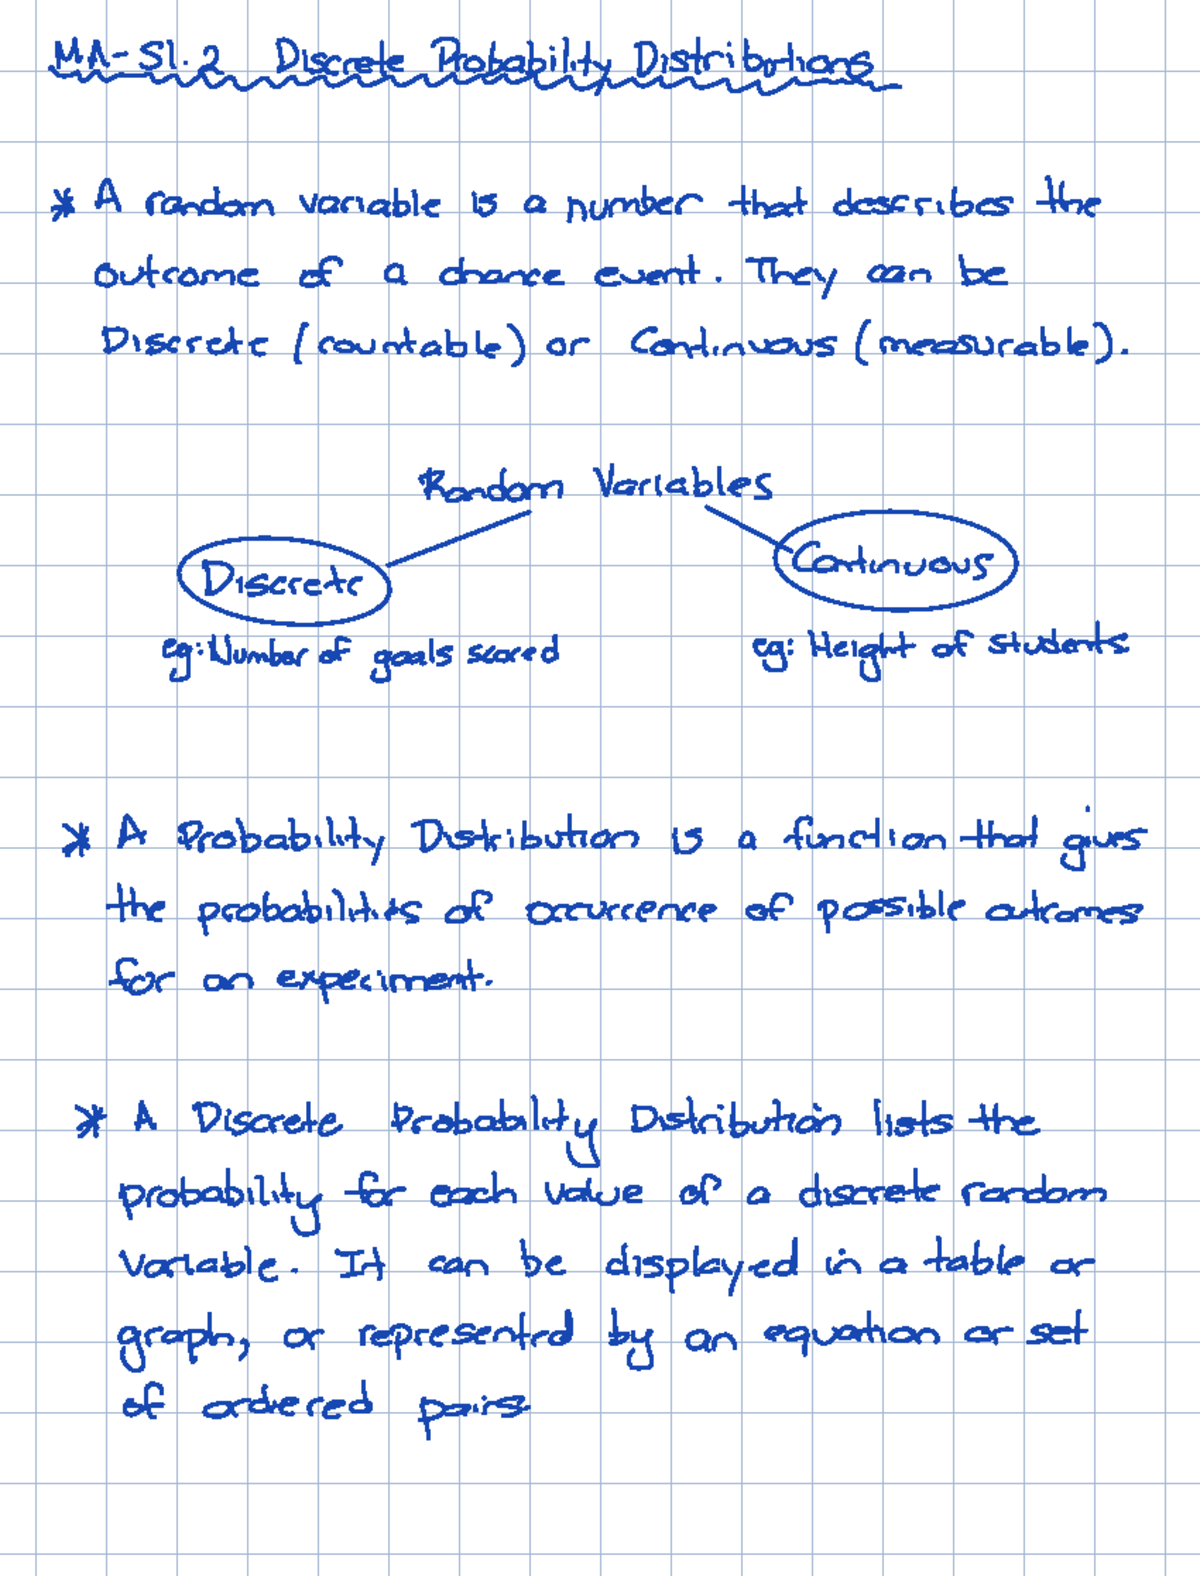 MA-S1.2 Discrete Probability Distributions
* A random variable is a number that describes the
outcome of a chance event. They can be
Discrete (countable) or Continuous (measurable).
Random Variables
Discrete
Continuous
eg: Number of goals scored
eg: Height of students
* A Probability Distribution is a function that gives
the probabilities of occurrence of possible outcomes
for an experiment.
* A Discrete Probability Distribution lists the
probability for each value of a discrete random
variable. It can be displayed in a table or
graph, or represented by an equation or set
of ordered pairs.